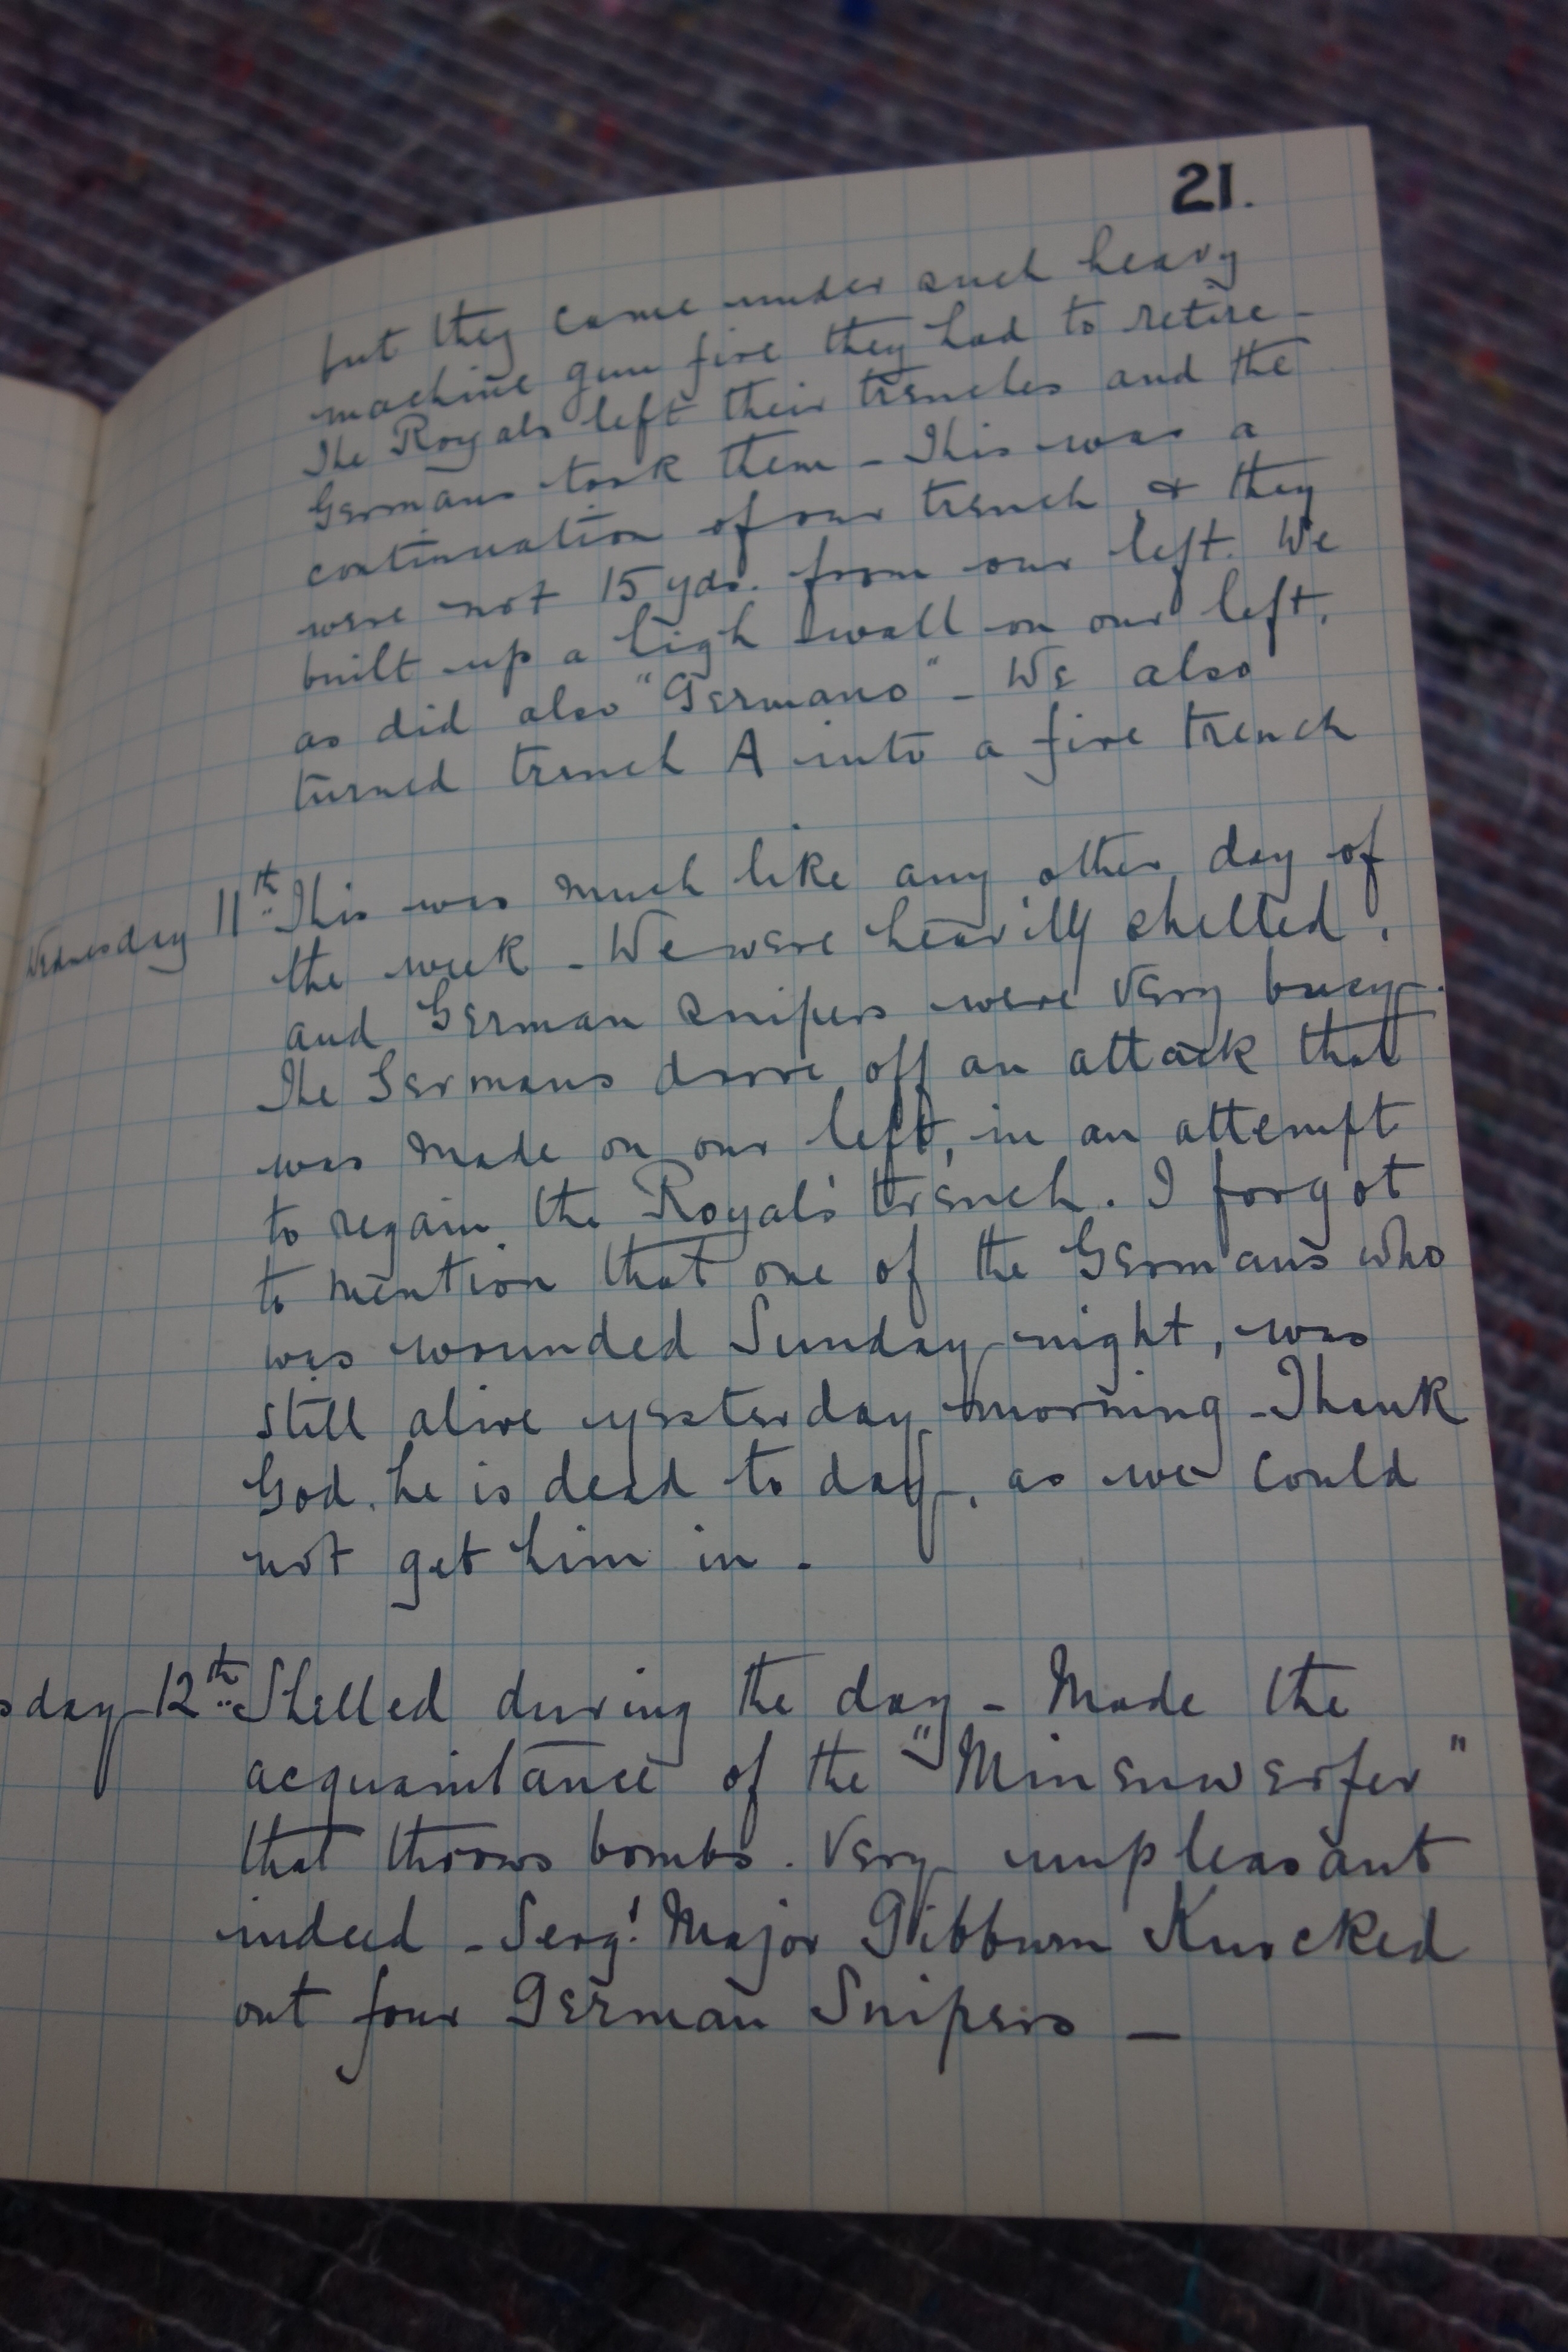 21.
but they came under such heavy
machine gun fire they had to retire -
The Royals left their trenches and the
Germans took them - This was a
continuation of our trench & they
were not 15 yds. from our left. We
built up a high wall on our left,
as did also "Germans" - We also
turned trench A into a fire trench
Wednesday 11th This was much like any other day of
the week - We were heavily shelled.
and German snipers were very busy -.
The Germans drove off an attack that
was made on our left, in an attempt
to regain the Royal's trench. I forgot
to mention that one of the Germans who
was wounded Sunday night, was
still alive yesterday morning - Thank
God, he is dead to day, as we could
not get him in -
sday 12th Shelled during the day - Made the
acquaintance of the "Minenwerfer"
that throws bombs. Very unpleasant
indeed - Sergt Major Gibburn Knocked
out four German Snipers -